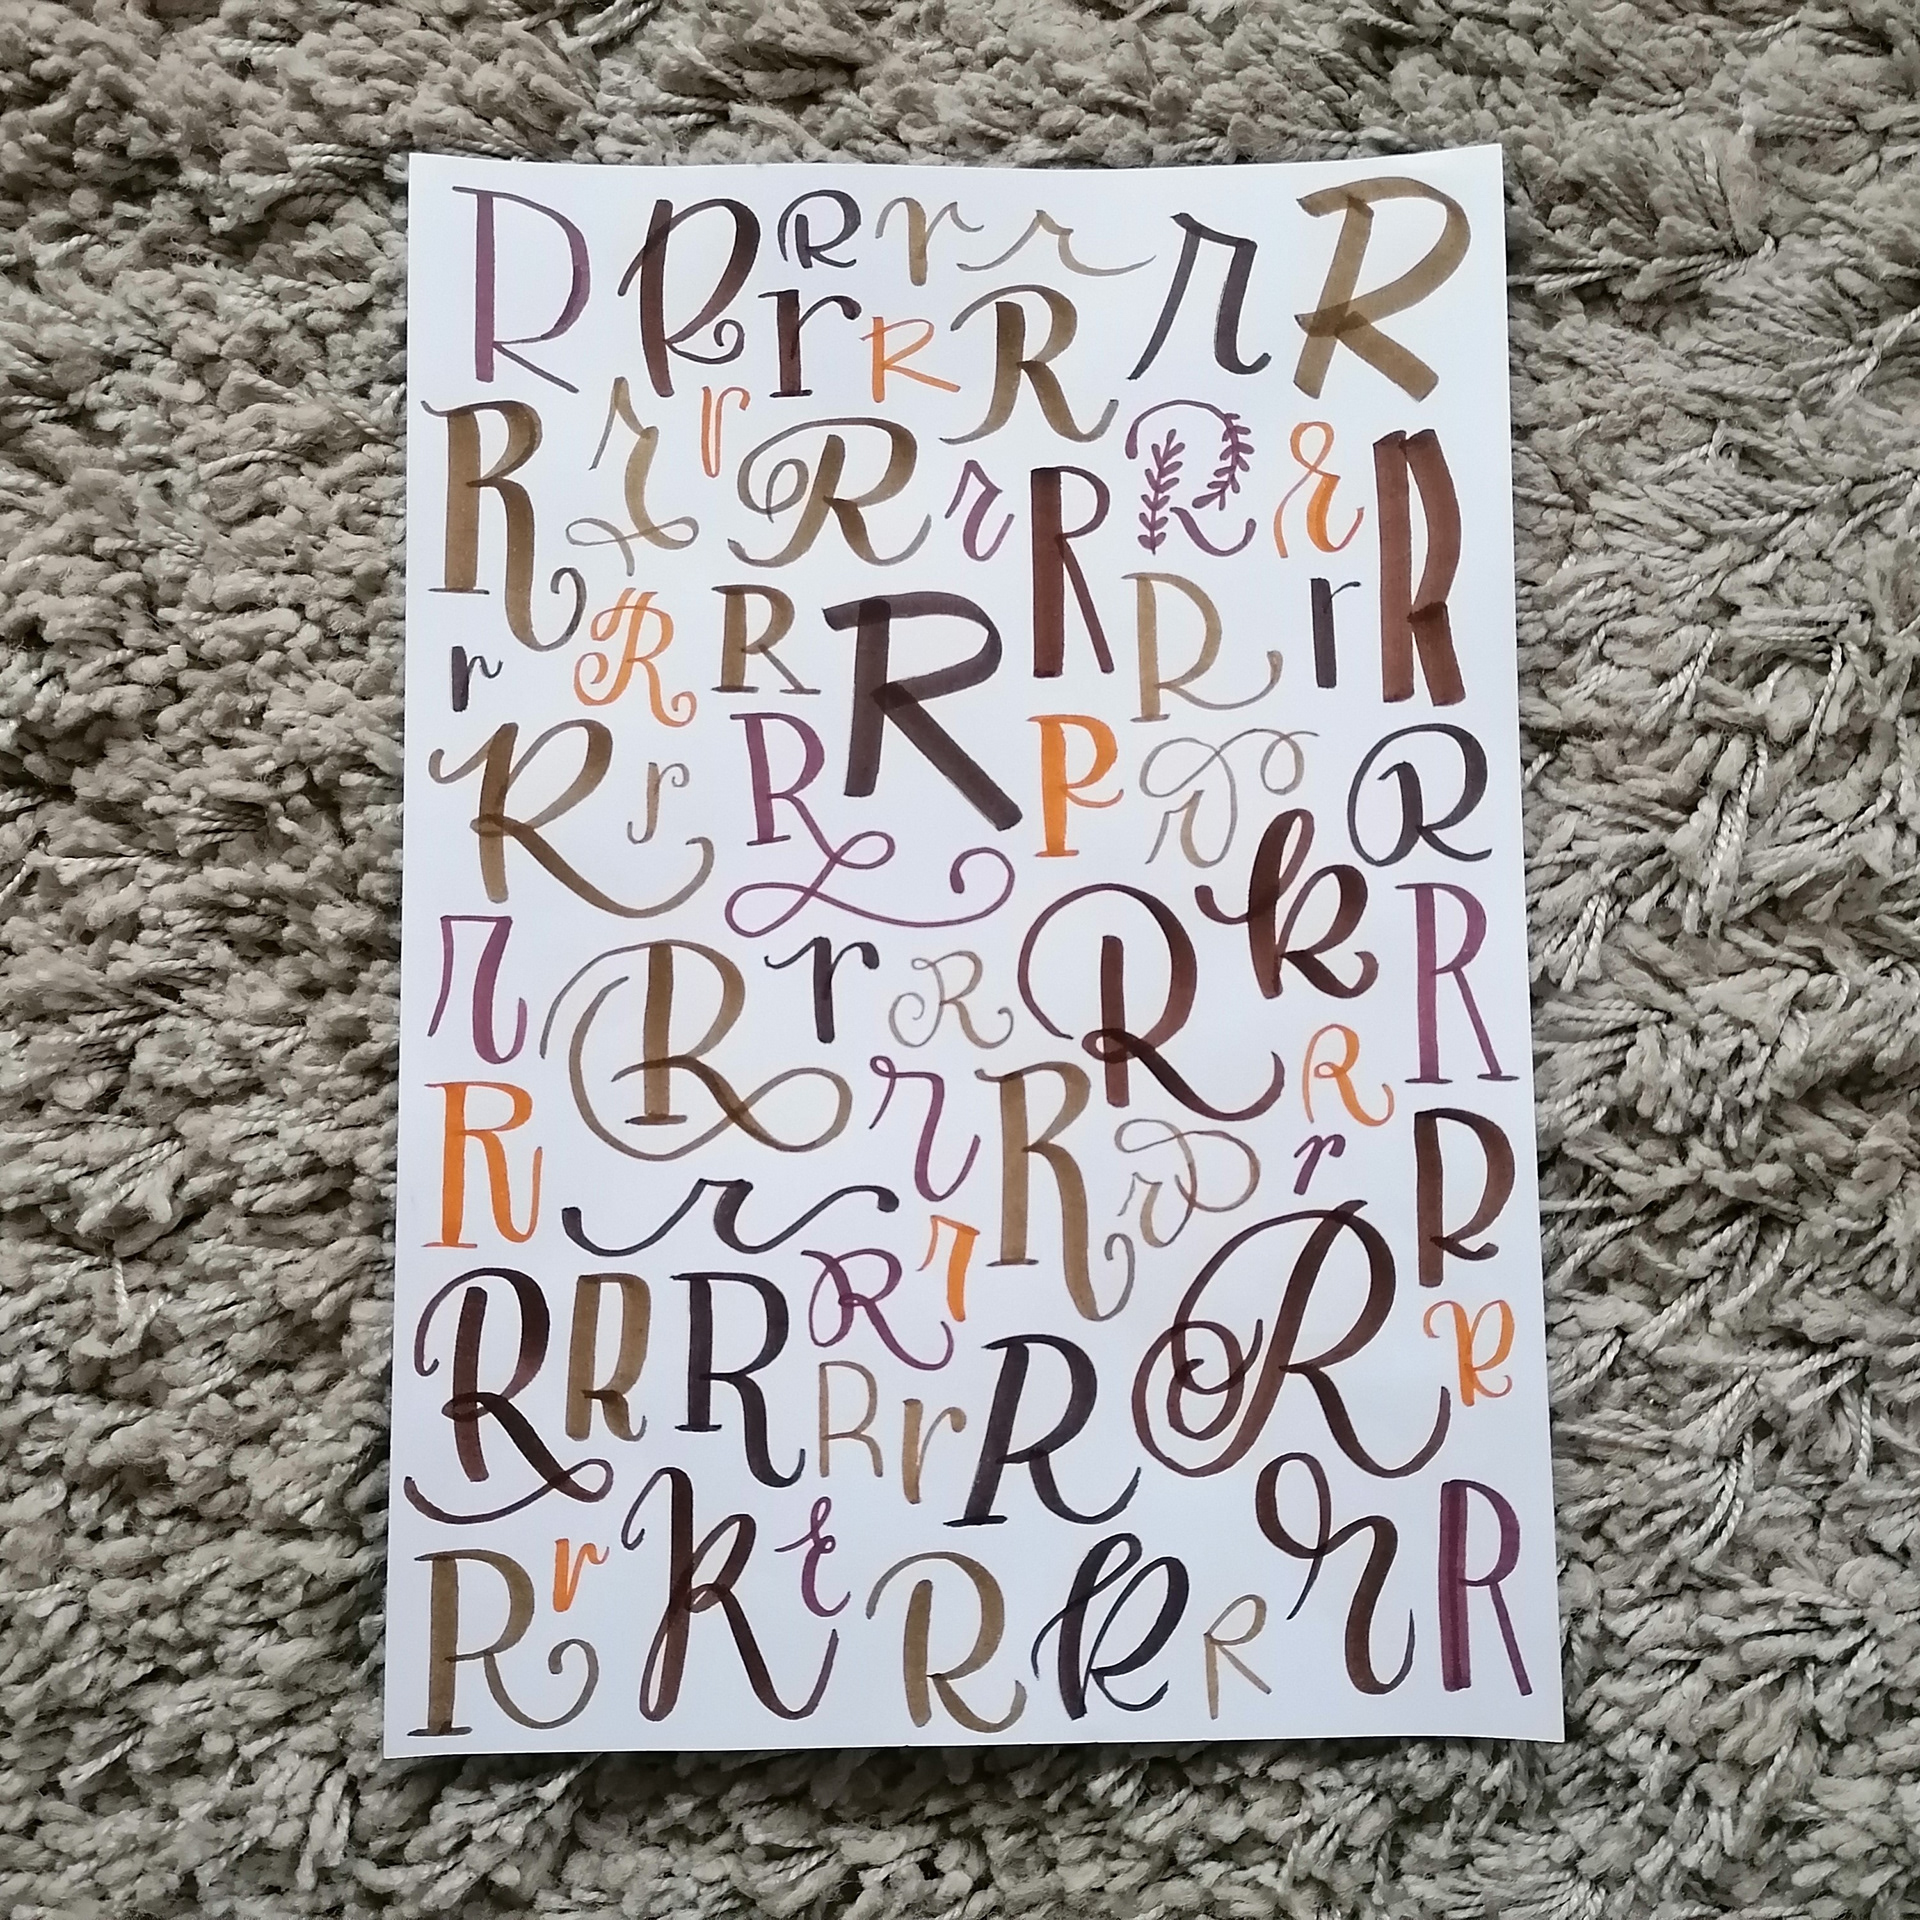 R R R r r r R
r R R
R r r R r R R r R
r R R R R r
R r R R r R
r R r R R R R
R r R r R R
r r r R
R R R R r R R
R r R R
R r R r R R R r R